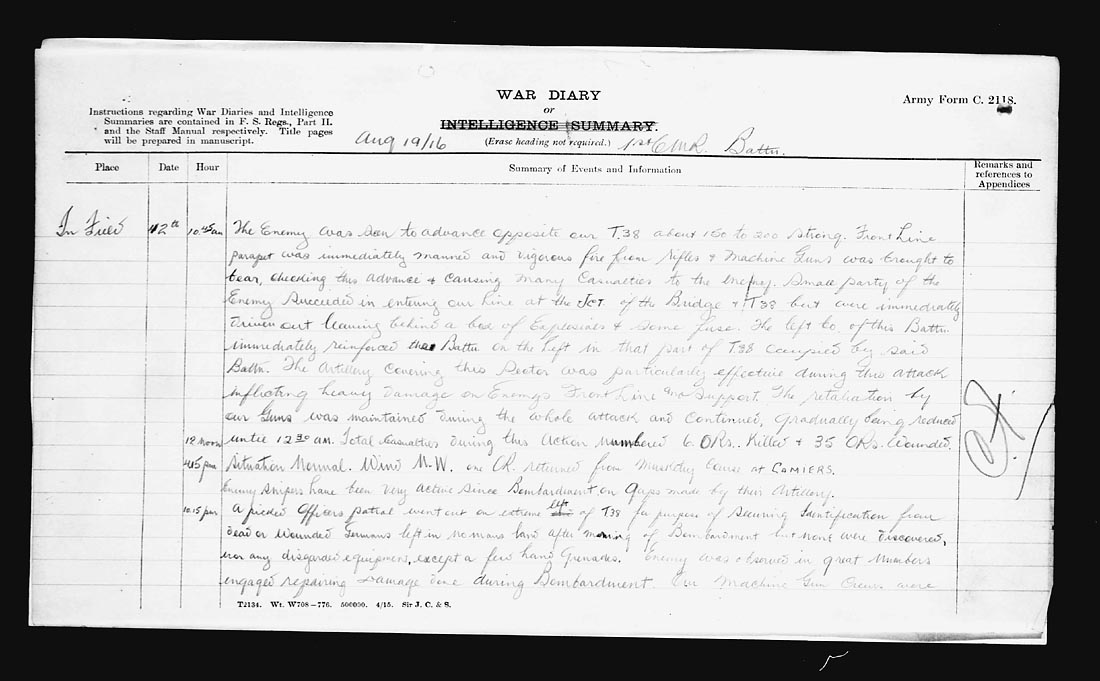 WAR DIARY
or
INTELLIGENCE SUMMARY.
(Erase heading not required.)
Army Form C. 2118.
Instructions regarding War Diaries and Intelligence
Summaries are contained in F. S. Regs., Part II.
and the Staff Manual respectively. Title pages
will be prepared in manuscript.
Aug 19/16 1st CMR. Battn.
Place Date Hour Summary of Events and Information Remarks and references to Appendices
In Field 12th 10.45am The Enemy was seen to advance opposite our T.38 about 150 to 200 strong. Front Line
parapet was immediately manned and vigorous fire from Rifles & Machine Guns was brought to
bear, checking this advance & causing many Casualties to the enemy. Small party of the
Enemy succeeded in entering our Line at the Jct. of the Bridge & T38 but were immediately
driven out leaving behind a box of Explosives & some fuse. The left Co. of this Battn.
immediately reinforced the Battn on the Left in that part of T.38 occupied by said
Battn. The Artillery covering this Sector was particularly effective during this attack
inflicting heavy damage on Enemys Front Line and Support. The retaliation by
our Guns was maintained during the whole attack and continued, gradually being reduced
until 12 30 am. Total Casualties during this Action numbered 6. ORs. Killed & 35 ORs. Wounded.
12 noon
4.15 pm Situation Normal. Wind N.W. one OR. returned from Musketry Course at CAMIERS.
Enemy Snipers have been very active since Bombardment, on Gaps made by their Artillery.
10.15 pm A picked Officers patrol went out on extreme left of T38 for purpose of securing Identification from
dead or Wounded Germans left in no mans land after morning of Bombardment but none were discovered,
nor any disgarded equipment, except a few hand Grenades. Enemy was observed in great numbers
engaged repairing Damage done during Bombardment. Our Machine Gun Crews were
T2134. Wt. W708—776. 500000. 4/15. Sir J. C. & S.